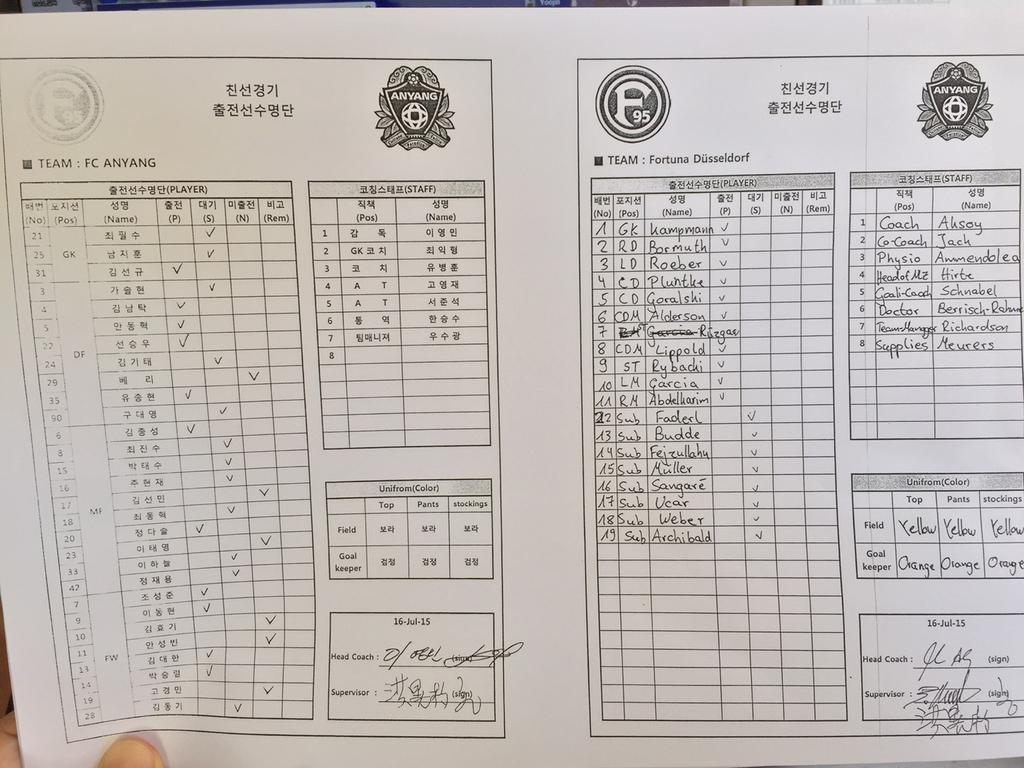 95
친선경기
출전선수명단
ANYANG
■ TEAM : FC ANYANG
출전선수명단(PLAYER)
배번(No) 포지션(Pos) 성명(Name) 출전(P) 대기(S) 미출전(N) 비고(Rem)
21 GK 최필수 ✓
25 남지훈 ✓
31 김선규 ✓
3 DF 가솔현 ✓
4 김남탁 ✓
5 안동혁 ✓
22 선승우 ✓
24 김기태 ✓
29 베 리 ✓
35 유종현 ✓
90 구대영 ✓
6 MF 김종성 ✓
8 최진수 ✓
15 박태수 ✓
16 주현재 ✓
17 김선민 ✓
18 최동혁 ✓
20 정다슬 ✓
23 이태영 ✓
33 이하늘 ✓
42 정재용 ✓
7 FW 조성준 ✓
9 이동현 ✓
10 김효기 ✓
11 안성빈 ✓
13 김대한 ✓
14 박승렬 ✓
19 고경민 ✓
28 김동기 ✓
코칭스태프(STAFF)
직책(Pos) 성명(Name)
1 감 독 이영민
2 GK코치 최익형
3 코 치 유병훈
4 A T 고영재
5 A T 서준석
6 통 역 한승수
7 팀매니져 우수광
8
Unifrom(Color)
Top Pants stockings
Field 보라 보라 보라
Goal keeper 검정 검정 검정
16-Jul-15
Head Coach : 이영민 (sign)
Supervisor : (sign)
F 95
친선경기
출전선수명단
ANYANG
■ TEAM : Fortuna Düsseldorf
출전선수명단(PLAYER)
배번(No) 포지션(Pos) 성명(Name) 출전(P) 대기(S) 미출전(N) 비고(Rem)
1 GK Kampmann ✓
2 RD Bormuth ✓
3 LD Roeber ✓
4 CD Pluntke ✓
5 CD Goralski ✓
6 CDM Alderson ✓
7 Garcia Rizgar
8 CDM Lippold ✓
9 ST Rybacki ✓
10 LM Garcia ✓
11 RM Abdelkarim ✓
22 Sub Faderl ✓
13 Sub Budde ✓
14 Sub Fejzullahu ✓
15 Sub Müller ✓
16 Sub Sangaré ✓
17 Sub Ucar ✓
18 Sub Weber ✓
19 Sub Archibald ✓
코칭스태프(STAFF)
직책(Pos) 성명(Name)
1 Coach Aksoy
2 Co-Coach Jack
3 Physio Ammendolea
4 Head of MZ Hirte
5 Goali-Coach Schnabel
6 Doctor Berrisch-Rahme
7 Team Manager Richardson
8 Supplies Meurers
Unifrom(Color)
Top Pants stockings
Field Yellow Yellow Yellow
Goal keeper Orange Orange Orange
16-Jul-15
Head Coach : (sign)
Supervisor : (sign)